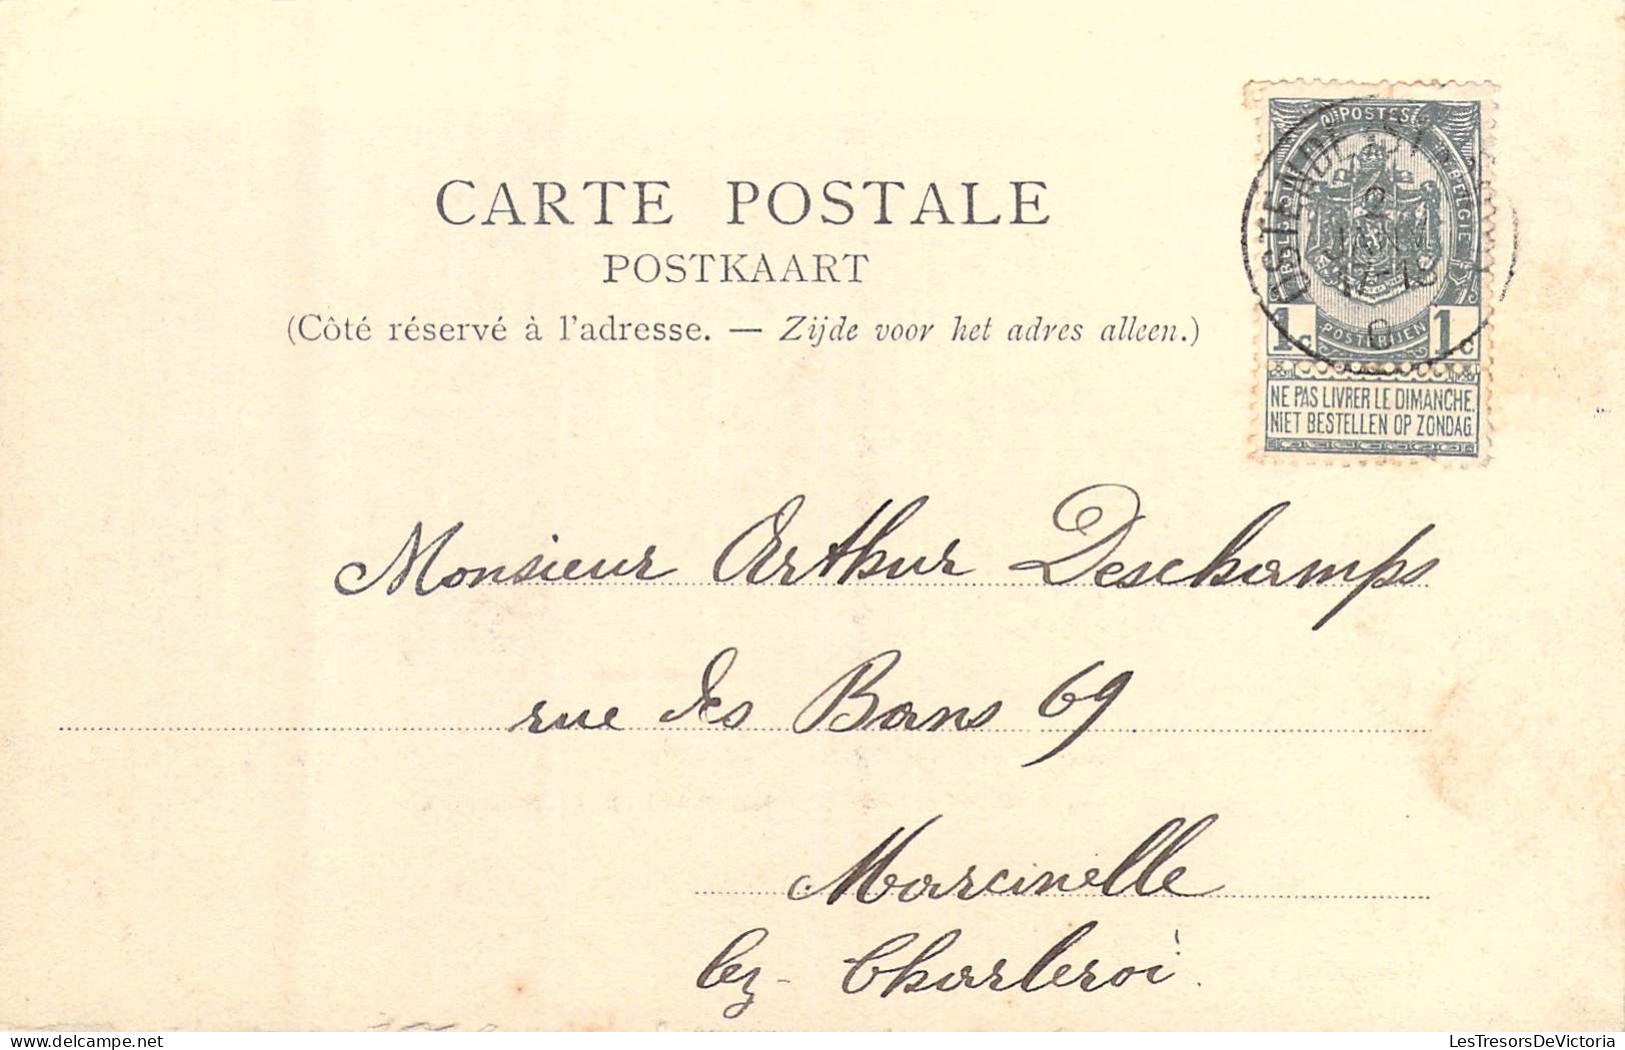 CARTE POSTALE
POSTKAART
(Côté réservé à l'adresse. — Zijde voor het adres alleen.)
POSTES
BELGIE
POSTERIJEN
1c 1c
NE PAS LIVRER LE DIMANCHE.
NIET BESTELLEN OP ZONDAG
OSTENDE
17-18
Monsieur Arthur Deschamps
rue des Bans 69
Marcinelle
lez - Charleroi
LesTresorsDeVictoria